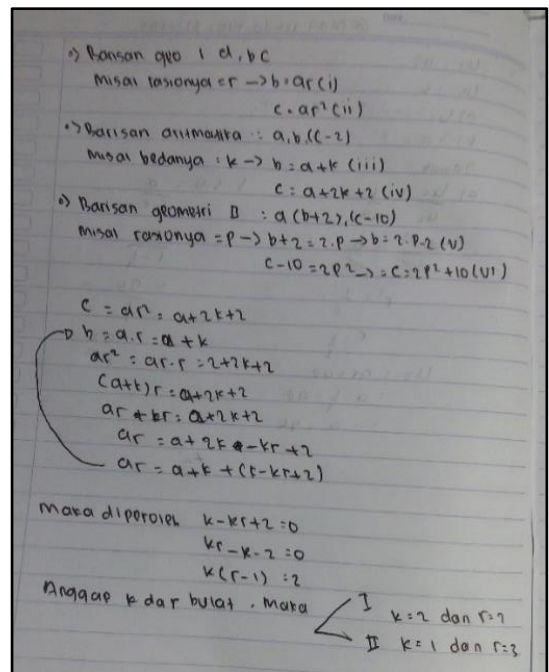 •) Barisan geo I a, b, c
misal rasionya = r → b = ar (i)
c = ar² (ii)
•) Barisan aritmatika : a, b, (c-2)
misal bedanya : k → b = a+k (iii)
c = a+2k+2 (iv)
•) Barisan geometri II : a (b+2), (c-10)
misal rasionya = p → b+2 = 2.p → b = 2.p-2 (v)
c-10 = 2p² → = c = 2p²+10 (VI)
c = ar² = a+2k+2
b = a.r = a+k
ar² = ar.r = 2+2k+2
(a+k)r = a+2k+2
ar + kr = a+2k+2
ar = a+2k - kr +2
ar = a+k + (r-kr+2)
maka diperoleh k-kr+2 = 0
kr-k-2 = 0
k(r-1) = 2
Anggap k dar bulat. maka
I k=2 dan r=2
II k=1 dan r=3